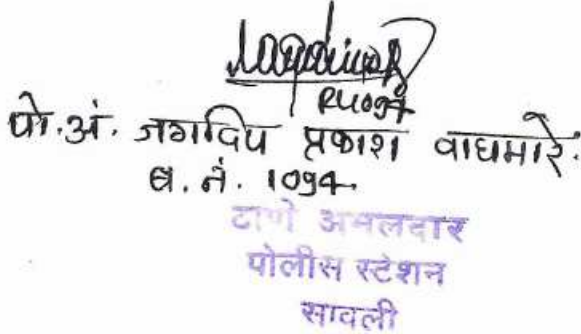 पो.अं. जगदिप प्रकाश वाघमारे.
ब. नं. 1094
ठाणे अमलदार
पोलीस स्टेशन
सावली